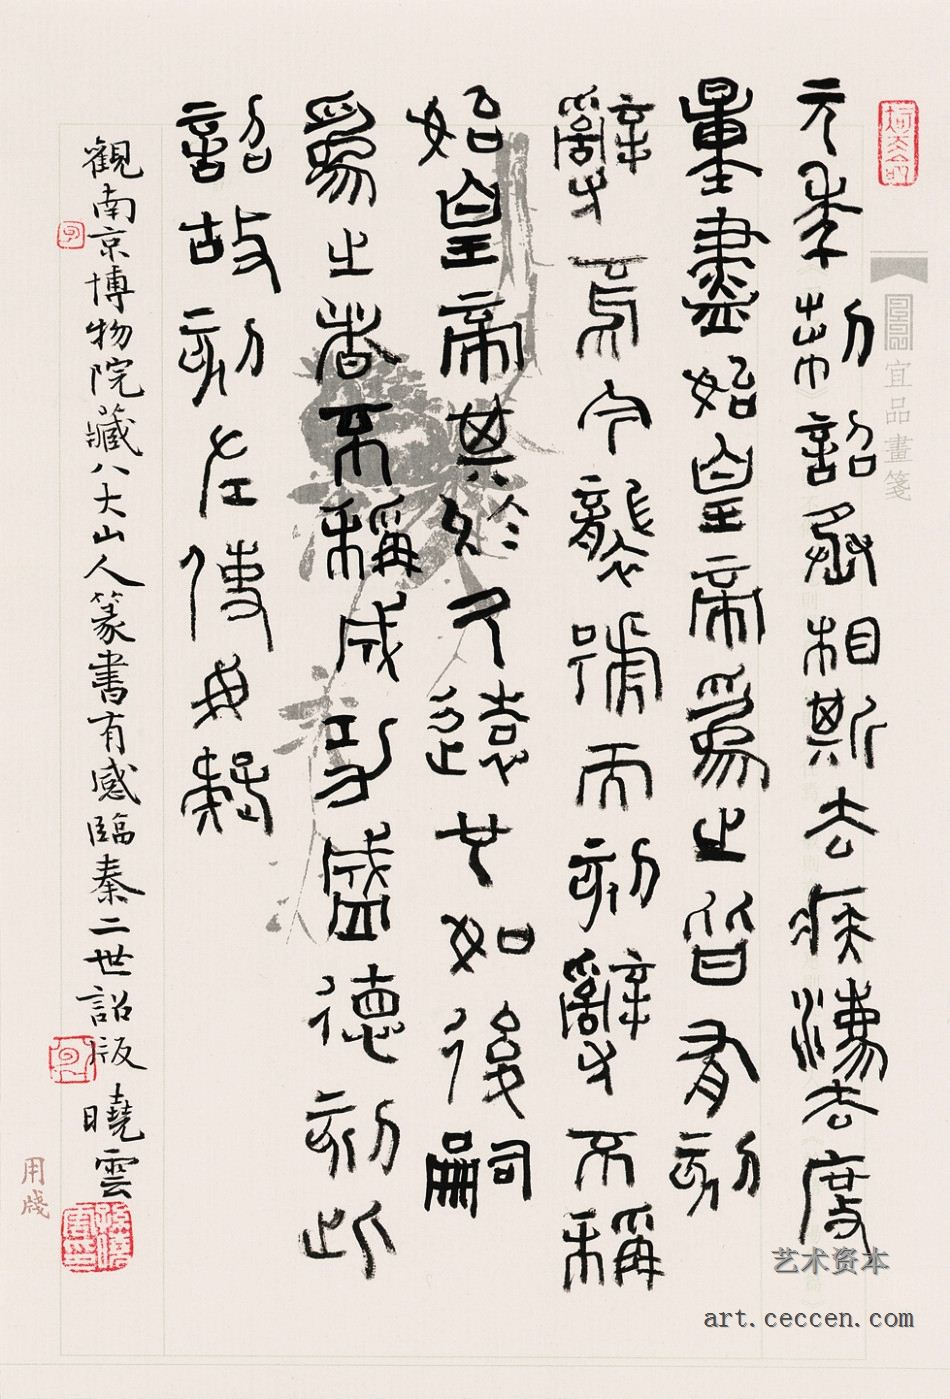 元年制詔丞相斯去疾灋度
量盡始皇帝爲之皆有刻
辭焉今襲號而刻辭不稱
始皇帝其於久遠也如後嗣
爲之者不稱成功盛德刻此
詔故刻左使毋疑
觀南京博物院藏八大山人篆書有感臨秦二世詔版 曉雲
宜品畫箋
用牋
艺术资本
art.ceccen.com